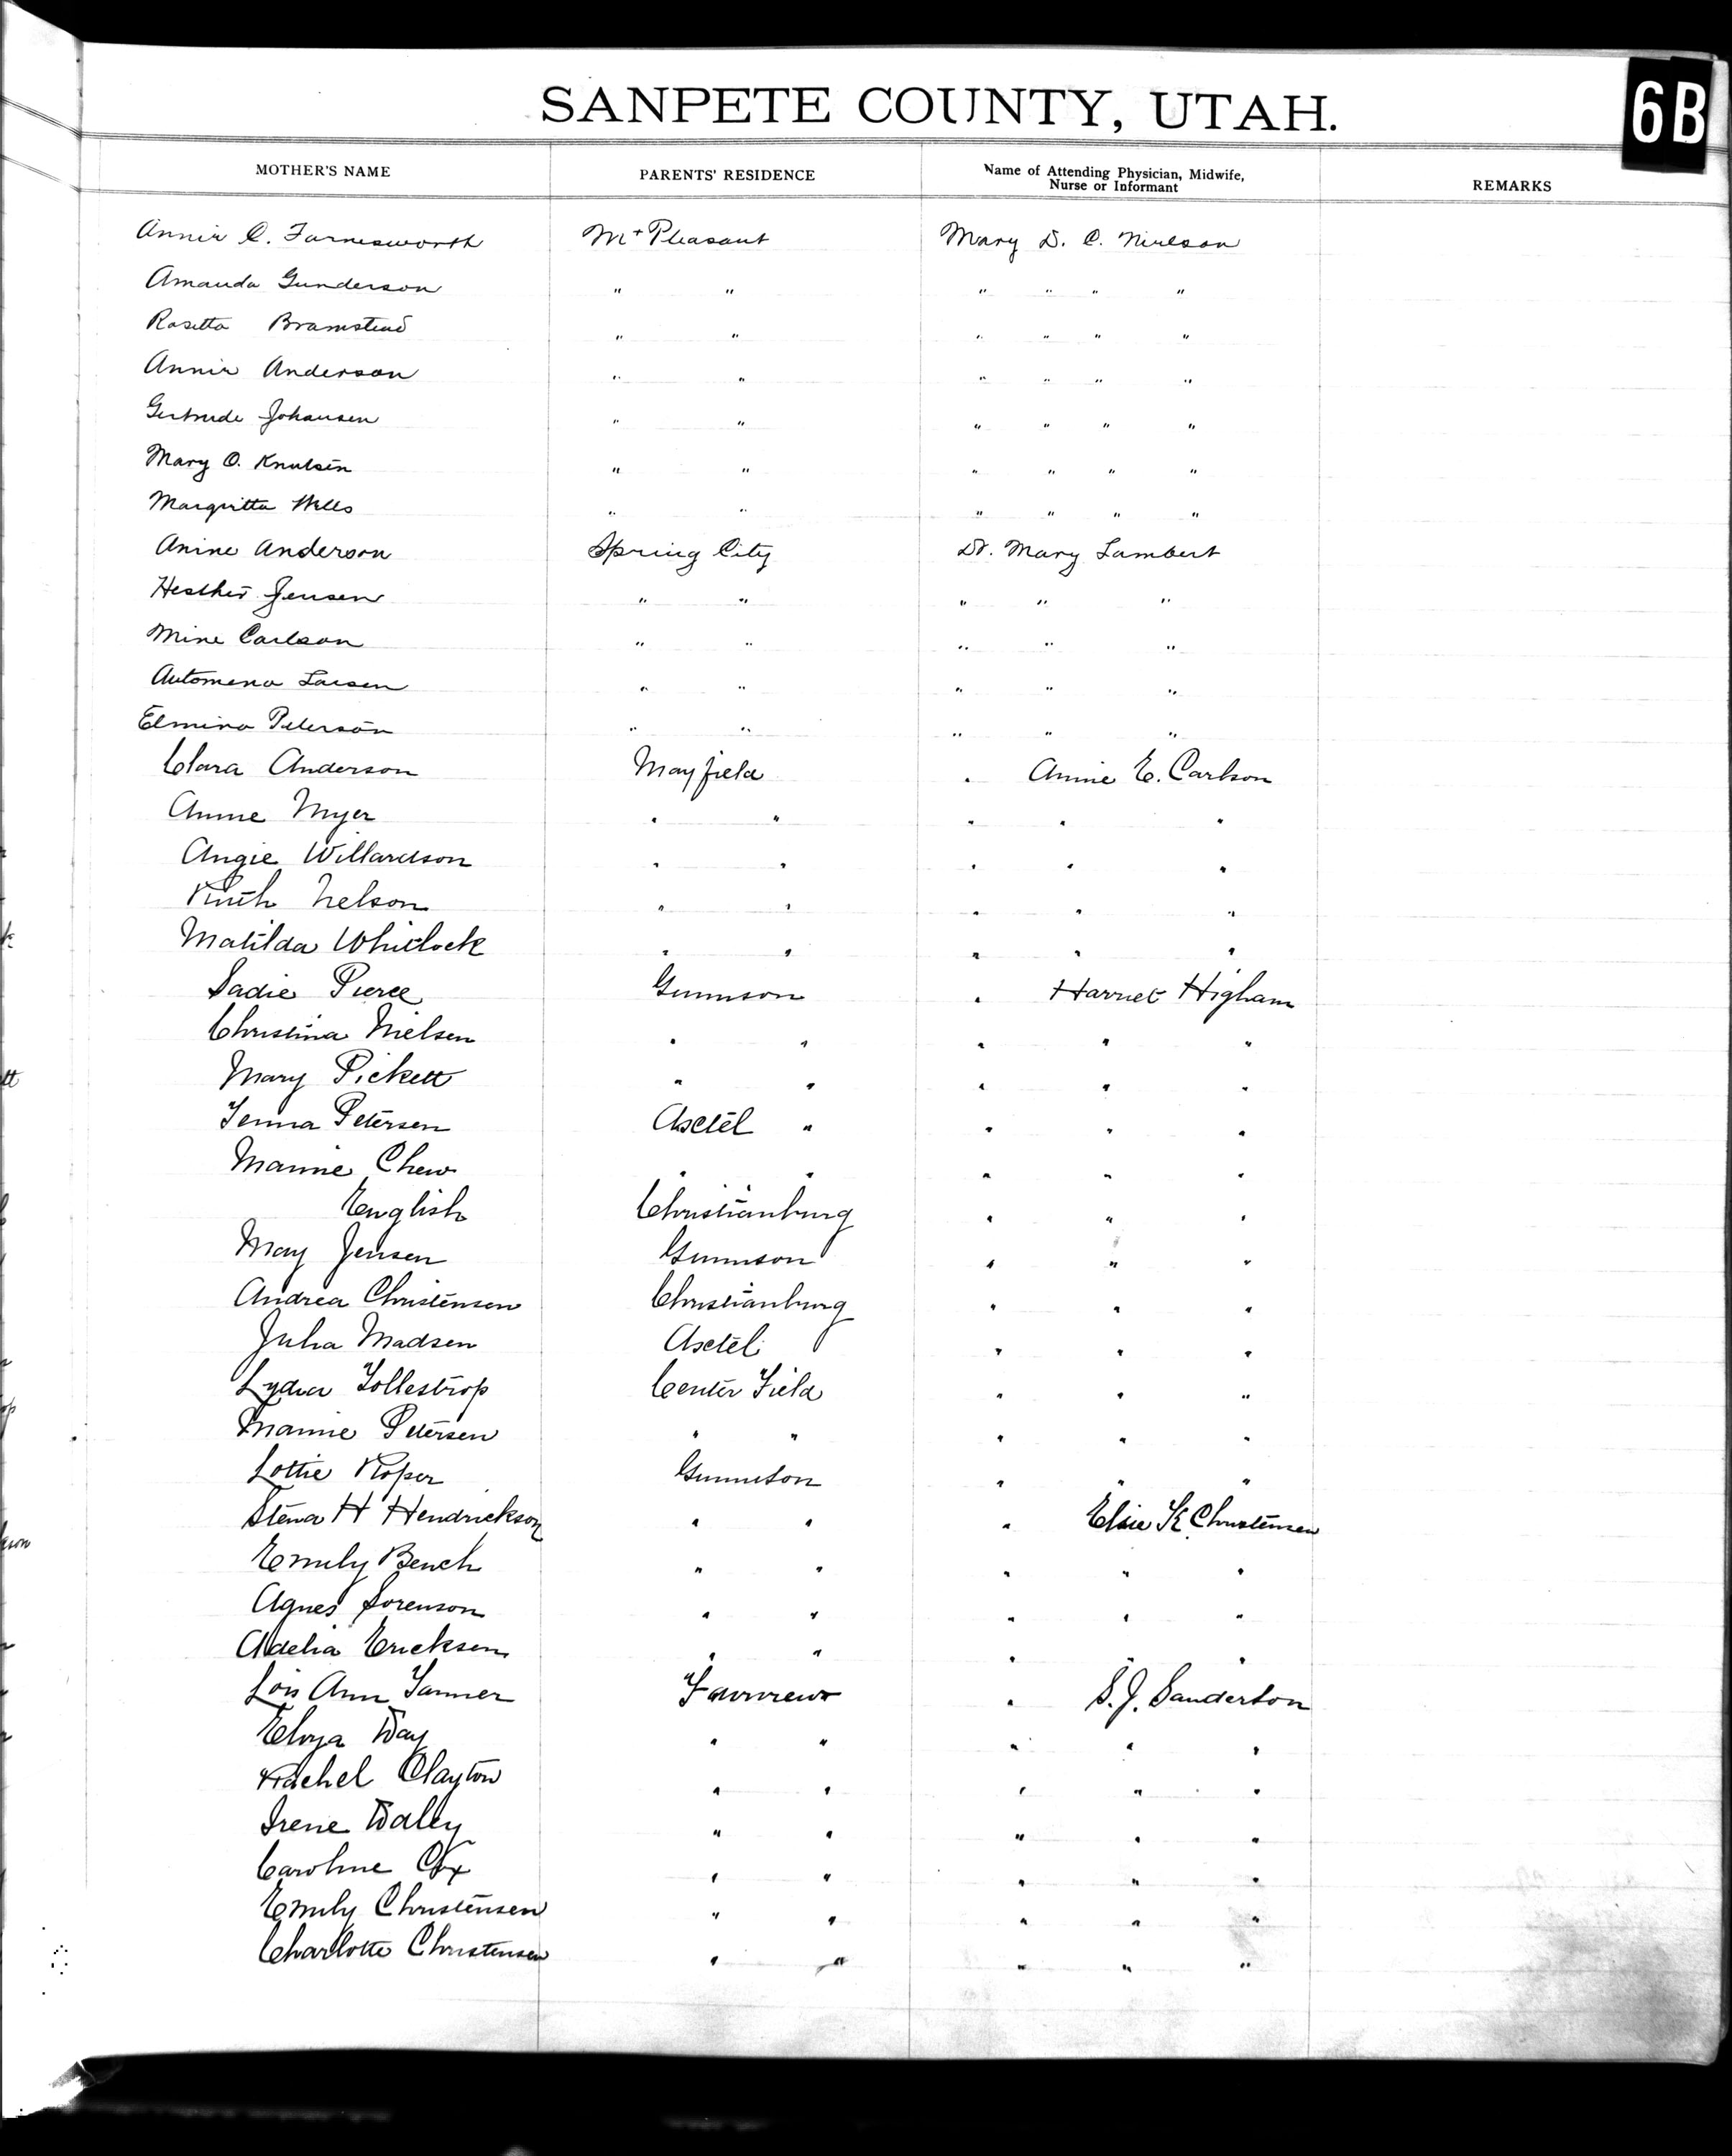 SANPETE COUNTY, UTAH.
6B
MOTHER'S NAME PARENTS' RESIDENCE Name of Attending Physician, Midwife, Nurse or Informant REMARKS
Annie C. Farnesworth Mt Pleasant Mary D. C. Nielson
Amanda Gunderson " " " " " "
Rosetta Bramstead " " " " " "
Annie Anderson " " " " " "
Gertrude Johansen " " " " " "
Mary O. Knutsen " " " " " "
Margritta Wells " " " " " "
Anine Anderson Spring City Dr. Mary Lambert
Hesther Jensen " " " " "
Mine Carlson " " " " "
Automena Larsen " " " " "
Elmina Peterson " " " " "
Clara Anderson Mayfield " Annie E. Carlson
Annie Myer " " " " "
Angie Willardson " " " " "
Ruth Nelson " " " " "
Matilda Whitlock " " " " "
Sadie Pierce Gunnison " Harriet Higham
Christina Nielsen " " " " "
Mary Pickett " " " " "
Petersen Axtel " " " "
Mamie Chew " " " " "
English Christianburg " " "
May Jensen Gunnison " " "
Andrea Christensen Christianburg " " "
Julia Madsen Axtel " " "
Lydia Tollestrop Center Field " " "
Mamie Petersen " " " " "
Lottie Roper Gunnison " " "
Stena H Hendrickson " " " Elsie K Christensen
Emily Bench " " " " "
Agnes Sorenson " " " " "
Adelia Ericksen " " " " "
Lois Ann Tanner Fairview " S. J. Sanderson
Day " " " " "
Rachel Clayton " " " " "
Irene Daley " " " " "
Caroline Cox " " " " "
Emily Christensen " " " " "
Charlotte Christensen " " " " "